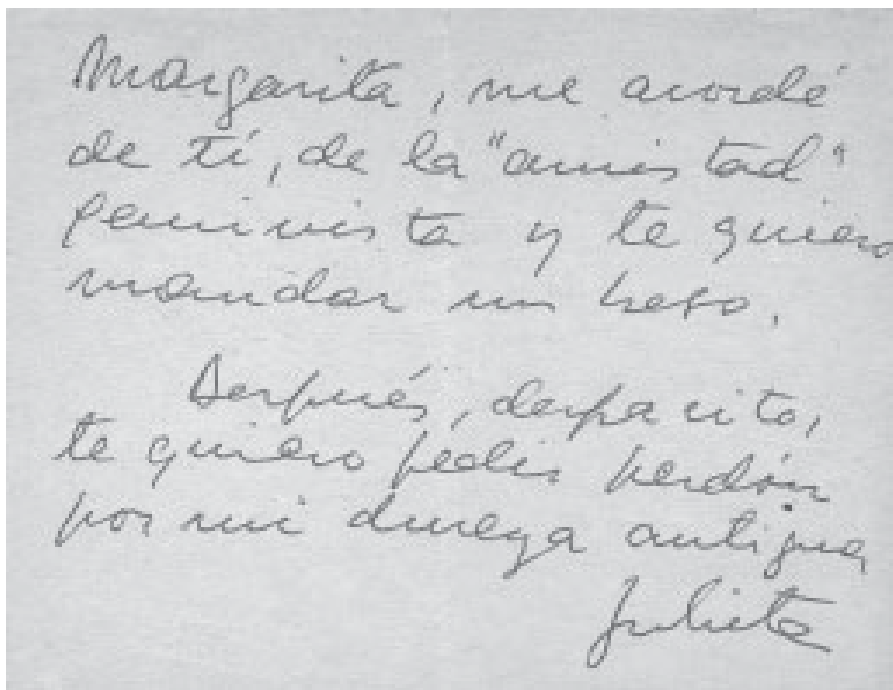 Margarita, me acordé
de tí, de la "amistad"
feminista y te quiero
mandar un beso.
Después, despacito,
te quiero pedir perdón
por mi dureza antigua
Julieta